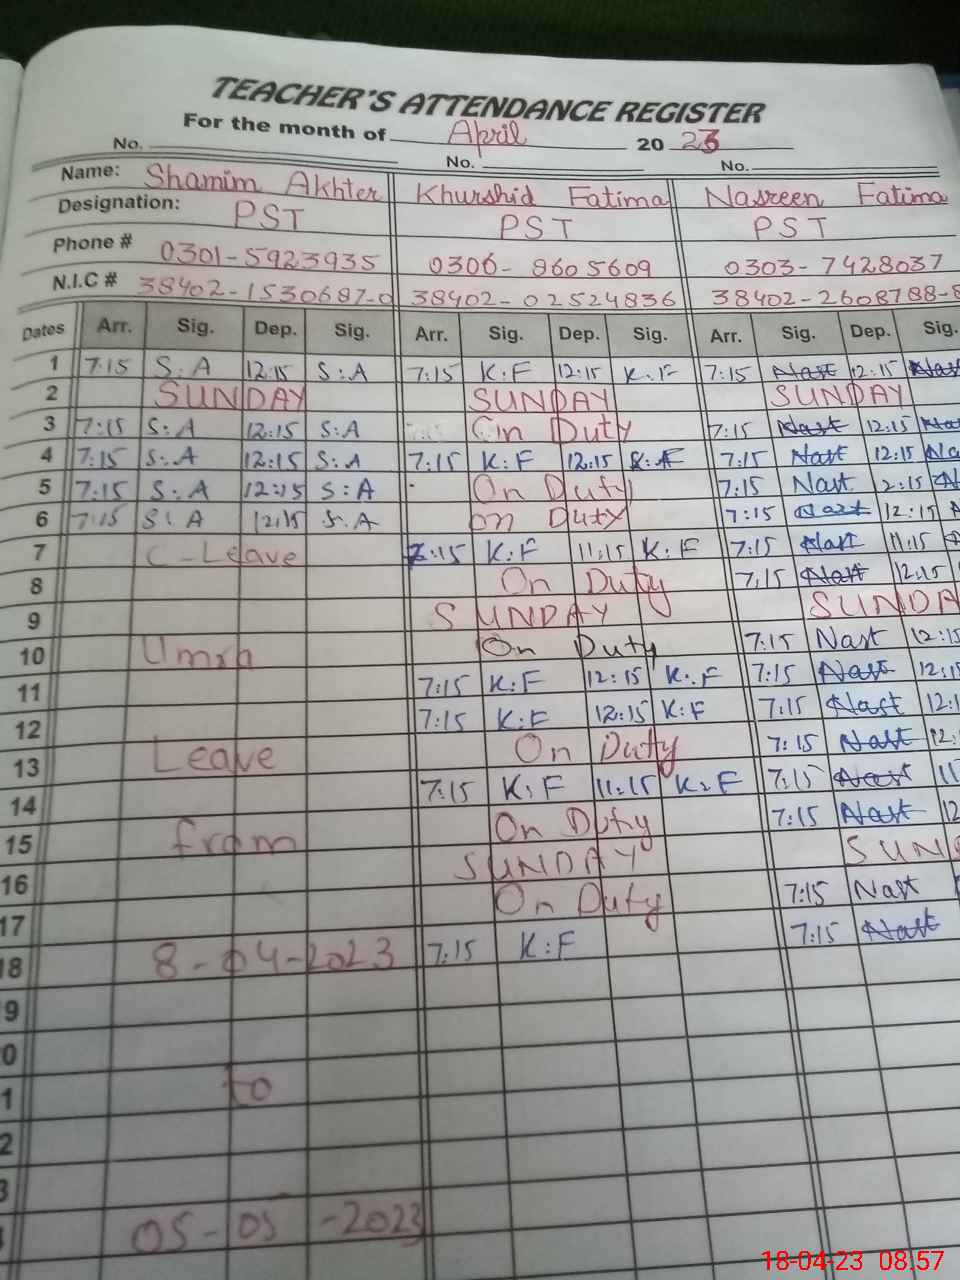 TEACHER'S ATTENDANCE REGISTER
For the month of April 20 23
No. No. No.
Name: Shamim Akhter Khurshid Fatima Nasreen Fatima
Designation: PST PST PST
Phone # 0301-5923935 0306-8605609 0303-7428037
N.I.C # 38402-1530687-0 38402-02524836 38402-2608788-8
Dates Arr. Sig. Dep. Sig. Arr. Sig. Dep. Sig. Arr. Sig. Dep. Sig.
1 7:15 S:A 12:15 S:A 7:15 K:F 12:15 K.F 7:15 Nast 12:15 Nas
2 SUNDAY SUNDAY SUNDAY
3 7:15 S:A 12:15 S:A On Duty 7:15 Nast 12:15 Na
4 7:15 S:A 12:15 S:A 7:15 K:F 12:15 K:F 7:15 Nast 12:15 Na
5 7:15 S:A 12:15 S:A On Duty 7:15 Nast 2:15
6 7:15 S:A 12:15 S.A on Duty 7:15 Nast 12:15
7 C-Leave 7:15 K:F 11:15 K:F 7:15 Nast 11:15
8 On Duty 7:15 Nast 12:15
9 SUNDAY SUNDA
10 Umrh On Duty 7:15 Nast 12:15
11 7:15 K:F 12:15 K.F 7:15 Nast 12:15
12 7:15 K:F 12:15 K:F 7:15 Nast 12:1
13 Leave On Duty 7:15 Nast 12:
14 7:15 K:F 11:15 K:F 7:15 Nast 11
15 from On Duty 7:15 Nast 12
16 SUNDAY SUN
17 On Duty 7:15 Nast
18 8-04-2023 7:15 K:F 7:15 Nast
9
0
1 to
2
3
05-05-2023
18-04-23 08.57